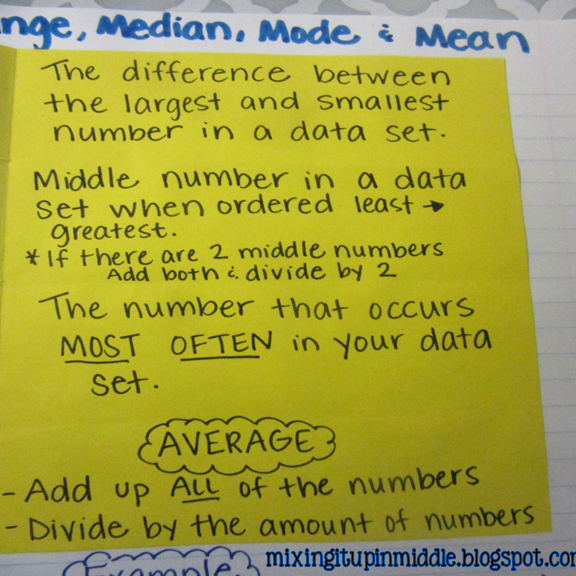 nge, Median, Mode & Mean
The difference between
the largest and smallest
number in a data set.
Middle number in a data
set when ordered least →
greatest.
*If there are 2 middle numbers
Add both & divide by 2
The number that occurs
MOST OFTEN in your data
set.
AVERAGE
- Add up ALL of the numbers
- Divide by the amount of numbers
Example
mixingitupinmiddle.blogspot.co